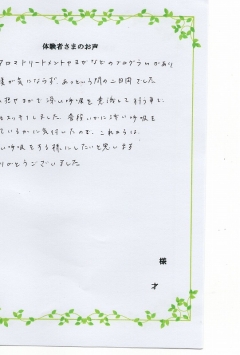 体験者さまのお声
アロマトリートメントやヨガなどのプログラムがあり
が気にならず、あっという間の二日間でした
ヨガで深い呼吸を意識して行う事で
スッキリしました。普段、いかに浅い呼吸を
ているかに気付いたので、これからは、
い呼吸をする様にしたいと思います
りがとうございました。
様
才